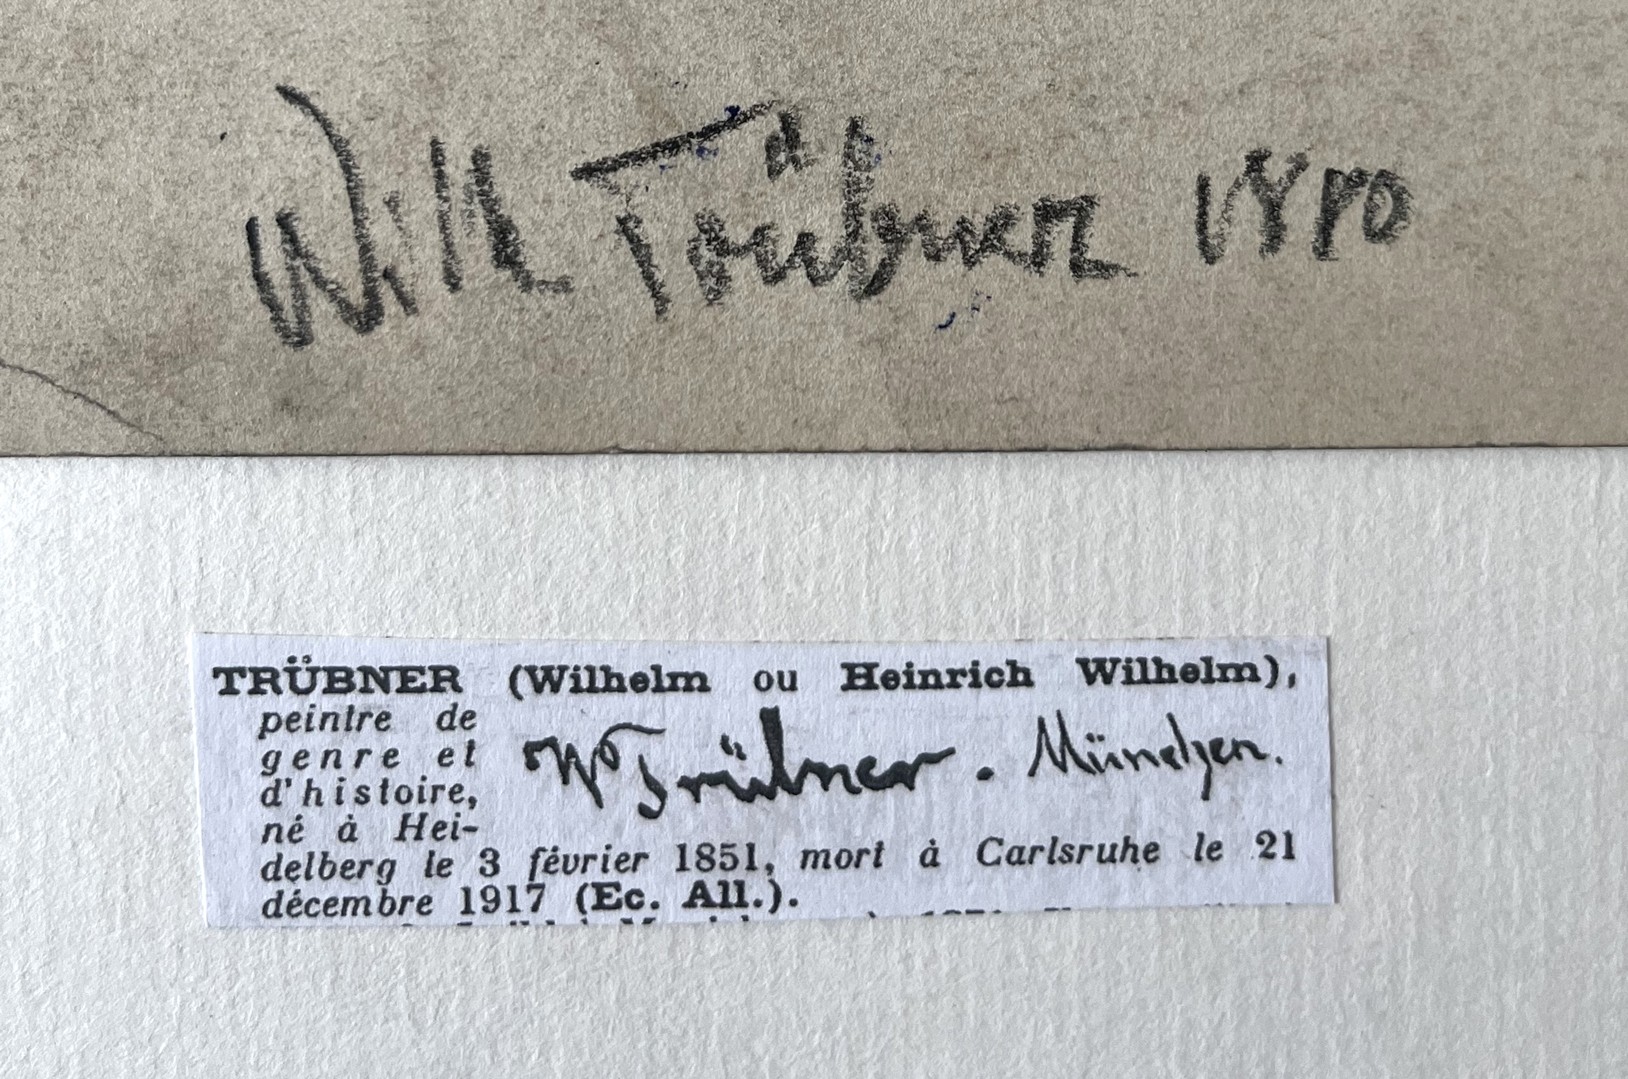 Wilh Trübner 1880
TRÜBNER (Wilhelm ou Heinrich Wilhelm),
peintre de
genre et
d'histoire,
né à Hei-
W Trübner. München.
delberg le 3 février 1851, mort à Carlsruhe le 21
décembre 1917 (Ec. All.).